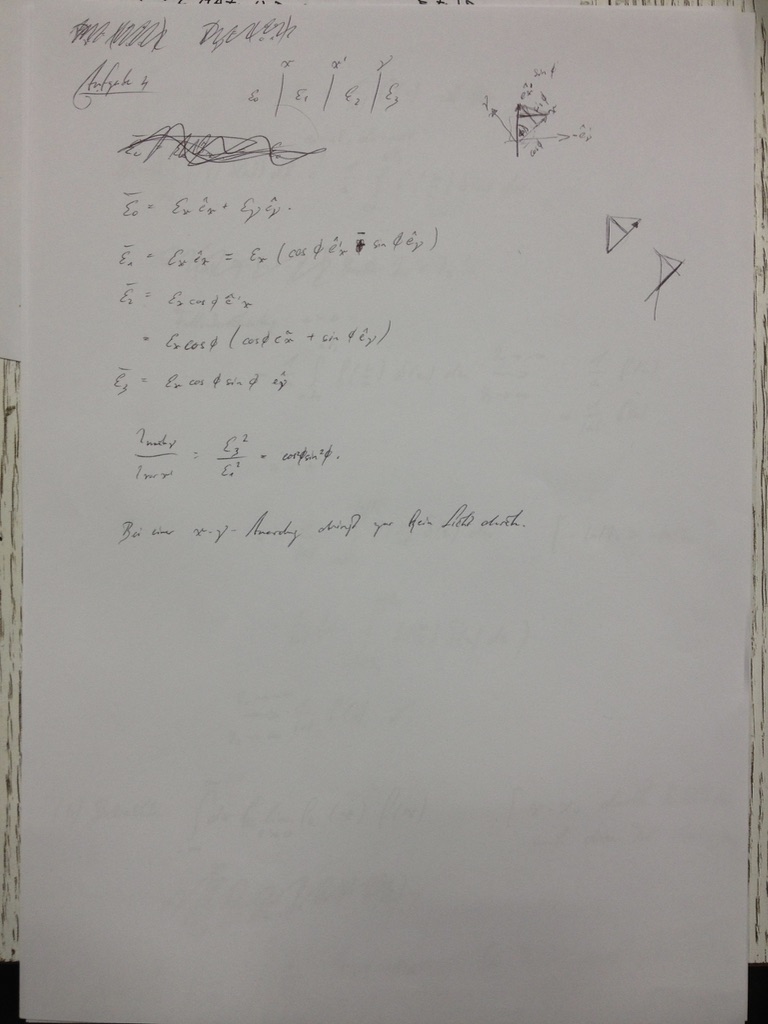 Aufgabe 4
x x' y
ε₀ | ε₁ | ε₂ | ε₃
sin ϕ
ε̄₀ = εₓ êₓ + ε_y ê_y.
ε̄₁ = εₓ êₓ = εₓ (cos ϕ ê'ₓ - sin ϕ ê'_y)
ε̄₂ = εₓ cos ϕ ê'ₓ
= εₓ cos ϕ (cos ϕ êₓ + sin ϕ ê_y)
ε̄₃ = εₓ cos ϕ sin ϕ ê_y
I nach y / I vor x' = ε₃² / ε₁² = cos²ϕ sin²ϕ.
Bei einer x-y-Anordnung dringt gar kein Licht durch.